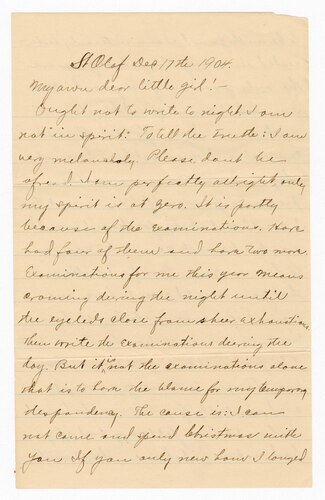 St Olaf Dec 17th 1904.
My own dear little girl! –
Ought not to write to night. I am
not "in spirit". To tell the truth: I am
very melancholy. Please dont be
afraid I am perfectly allright, only
my spirit is at zero. It is partly
because of the examinations. Have
had four of them and have two more.
Examinations for me this year means
craming during the night until
the eyelids close from sheer exhaustion
then write the examinations during the
day. But it is not the examinations alone
that is to have the blame for my temporary
despondency. The cause is: I can
not come and spend Christmas with
you. If you only new how I longed